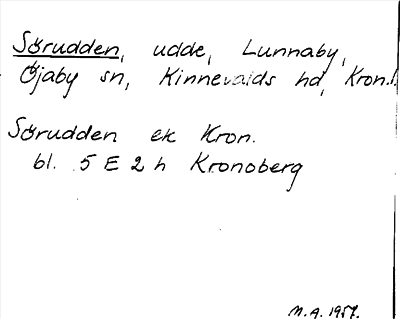 Sörudden, udde, Lunnaby,
Öjaby sn, Kinnevalds hd, Kron.l.
Sörudden ek Kron.
bl. 5 E 2 h Kronoberg
M.A. 1957.